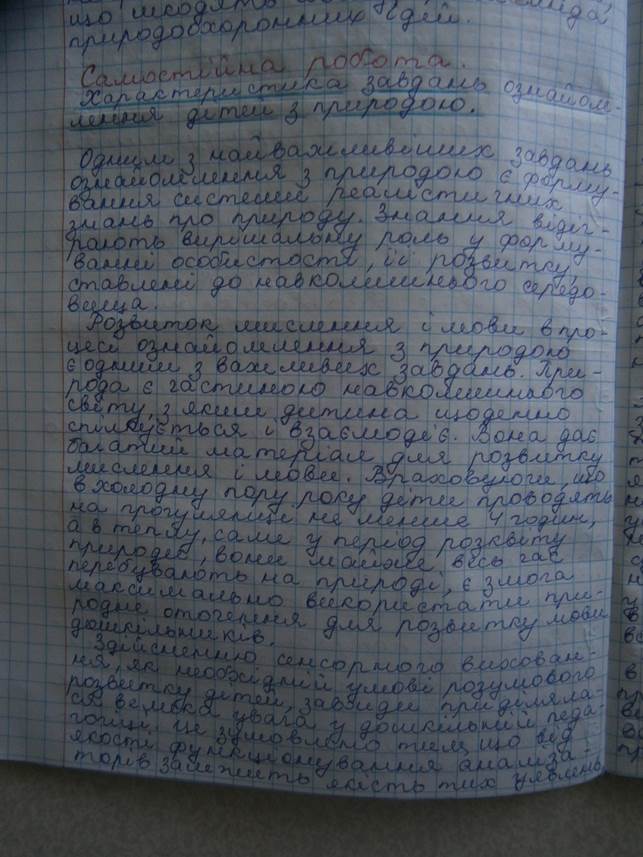 що шкодять
природоохоронних ідей.
Самостійна робота.
Характеристика завдань ознайом-
лення дітей з природою.
Одним з найважливіших завдань
ознайомлення з природою є форму-
вання системи реалістичних
знань про природу. Знання відіг-
рають вирішальну роль у форму-
ванні особистості, її розвитку,
ставленні до навколишнього середо-
вища.
Розвиток мислення і мови в про-
цесі ознайомлення з природою
є одним з важливих завдань. При-
рода є частиною навколишнього
світу, з яким дитина щоденно
спілкується і взаємодіє. Вона дає
багатий матеріал для розвитку
мислення і мови. Враховуючи, що
в холодну пору року діти проводять
на прогулянці не менше 4 годин,
а в теплу, саме у період розквіту
природи, вони майже весь час
перебувають на природі, є змога
максимально використати при-
родне оточення для розвитку мови
дошкільників.
Здійсненню сенсорного вихован-
ня, як необхідній умові розумового
розвитку дітей, завжди приділяла-
ся велика увага у дошкільній педа-
гогіці. Це зумовлено тим, що від
якості функціонування аналіза-
торів залежить якість тих уявлень